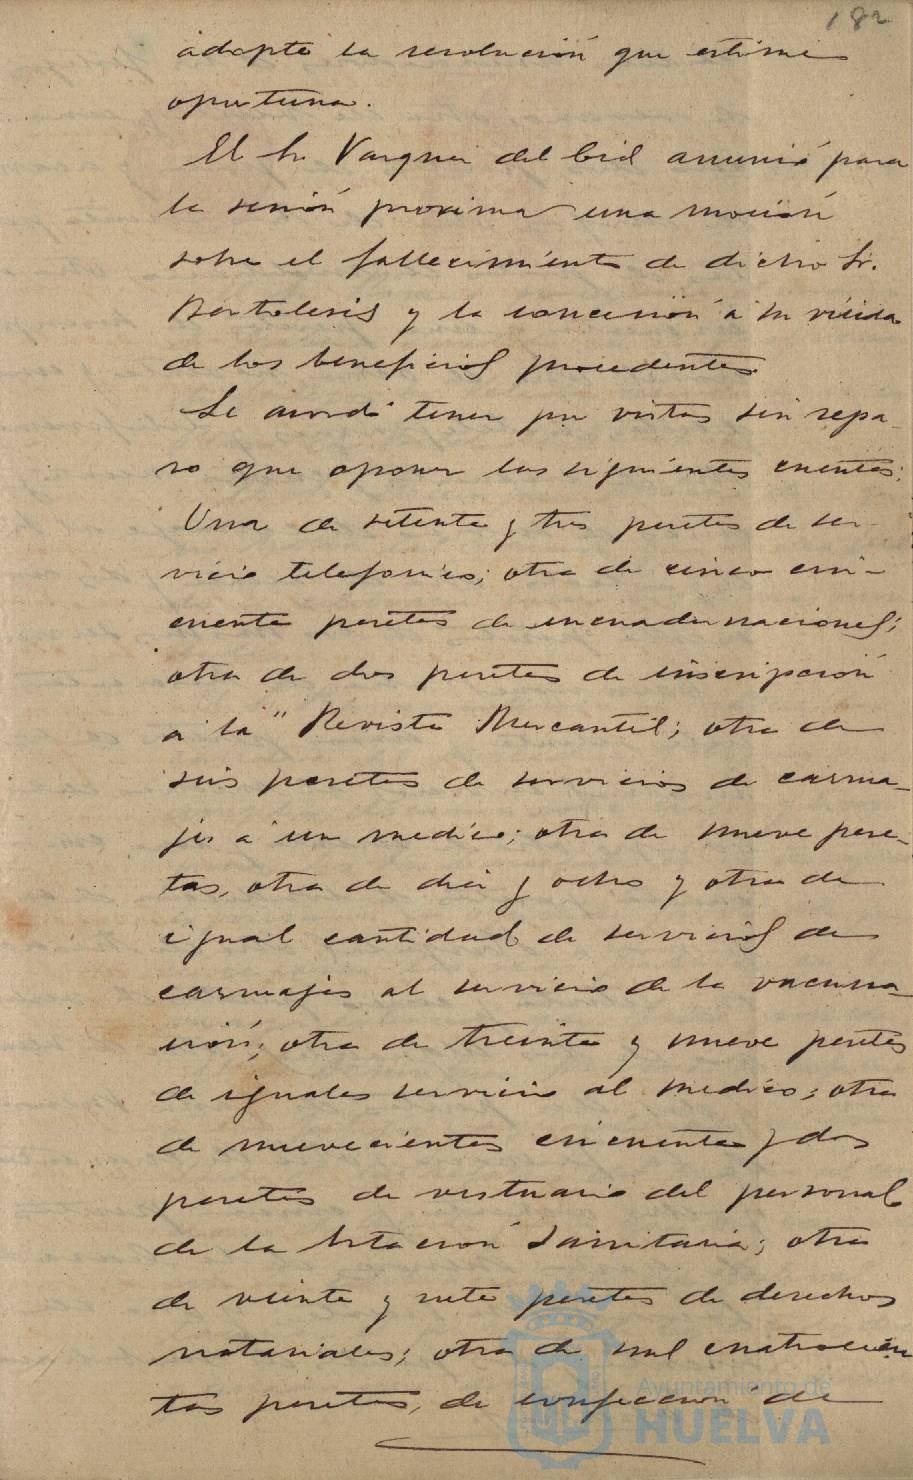 182
adopte la resolución que estime
oportuna.
El Sr. Vazquez del Cid anunció para
la sesión proxima una moción
sobre el fallecimiento de dicho Sr.
y la concesión á su viuda
de los beneficios procedentes.
Se acordó tener por vistas sin repa-
ro que oponer las siguientes cuentas:
Una de setenta y tres pesetas de ser-
vicio telefonico; otra de cinco cin-
cuenta pesetas de encuadernaciones;
otra de dos pesetas de inscripción
á la "Revista Mercantil; otra de
seis pesetas de servicios de carrua-
jes á un medico; otra de nueve pese-
tas, otra de diez y ocho y otra de
igual cantidad de servicios de
carruajes al servicio de la vacuna-
ción; otra de treinta y nueve pesetas
de iguales servicio al medico; otra
de nuevecientas cincuenta y dos
pesetas de vestuario del personal
de la Estación Sanitaria; otra
de veinte y siete pesetas de derechos
notariales; otra de mil cuatrocien
tas pesetas, de confeccion de
Ayuntamiento de
HUELVA